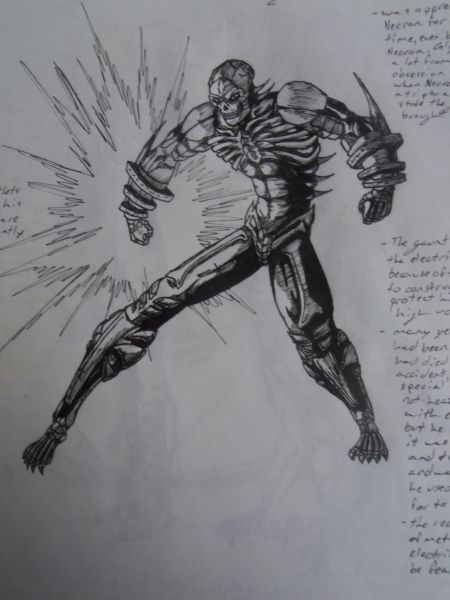 - was appre
Necron for
time, ever
Necron.
a lot from
obsession
when Necro
a trip to a
stole the
brought
- The gaunt
the electri
because of
to constru
protect hi
high vo
- many ye
had been
had died
accident,
special
not hea
with e
but he
it was
and
and wa
he used
for to
- the rea
of met
electri
be fea